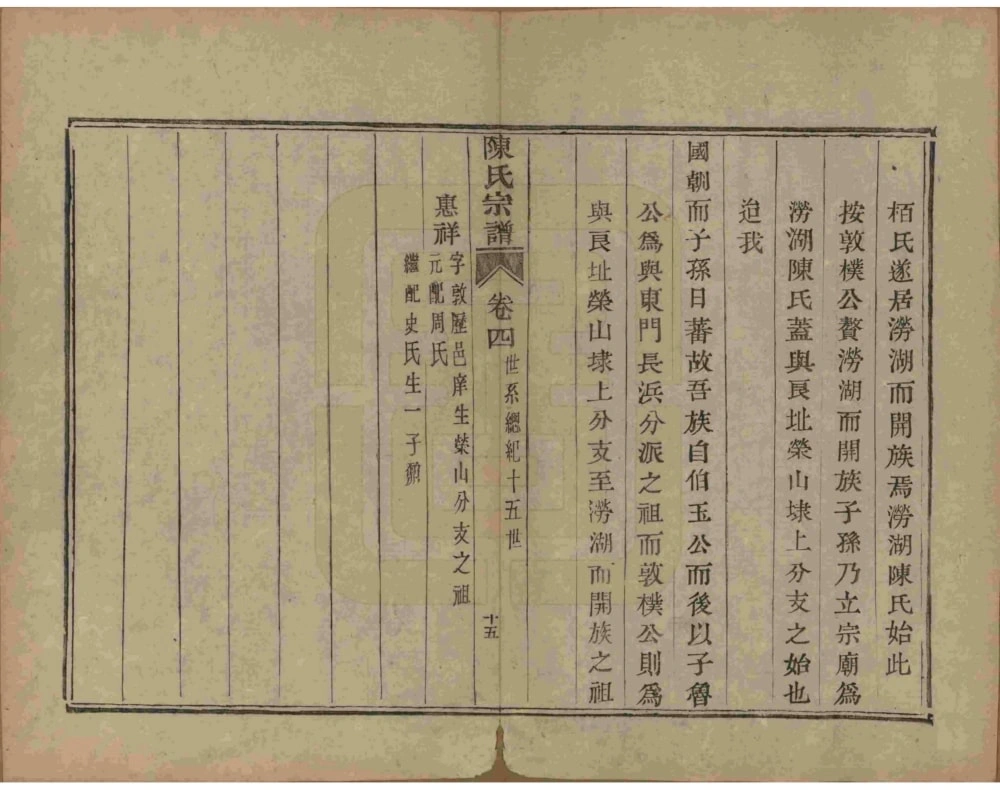 栢氏遂居澇湖而開族焉澇湖陳氏始此
按敦樸公贅澇湖而開族子孫乃立宗廟爲
澇湖陳氏蓋與艮址榮山埭上分支之始也
迨我
國朝而子孫日蕃故吾族自伯玉公而後以子魯
公爲與東門長浜分派之祖而敦樸公則爲
與艮址榮山埭上分支至澇湖而開族之祖
陳氏宗譜
卷四
世系總紀十五世
十五
惠祥
字敦歷邑庠生榮山分支之祖
元配周氏
繼配史氏生一子